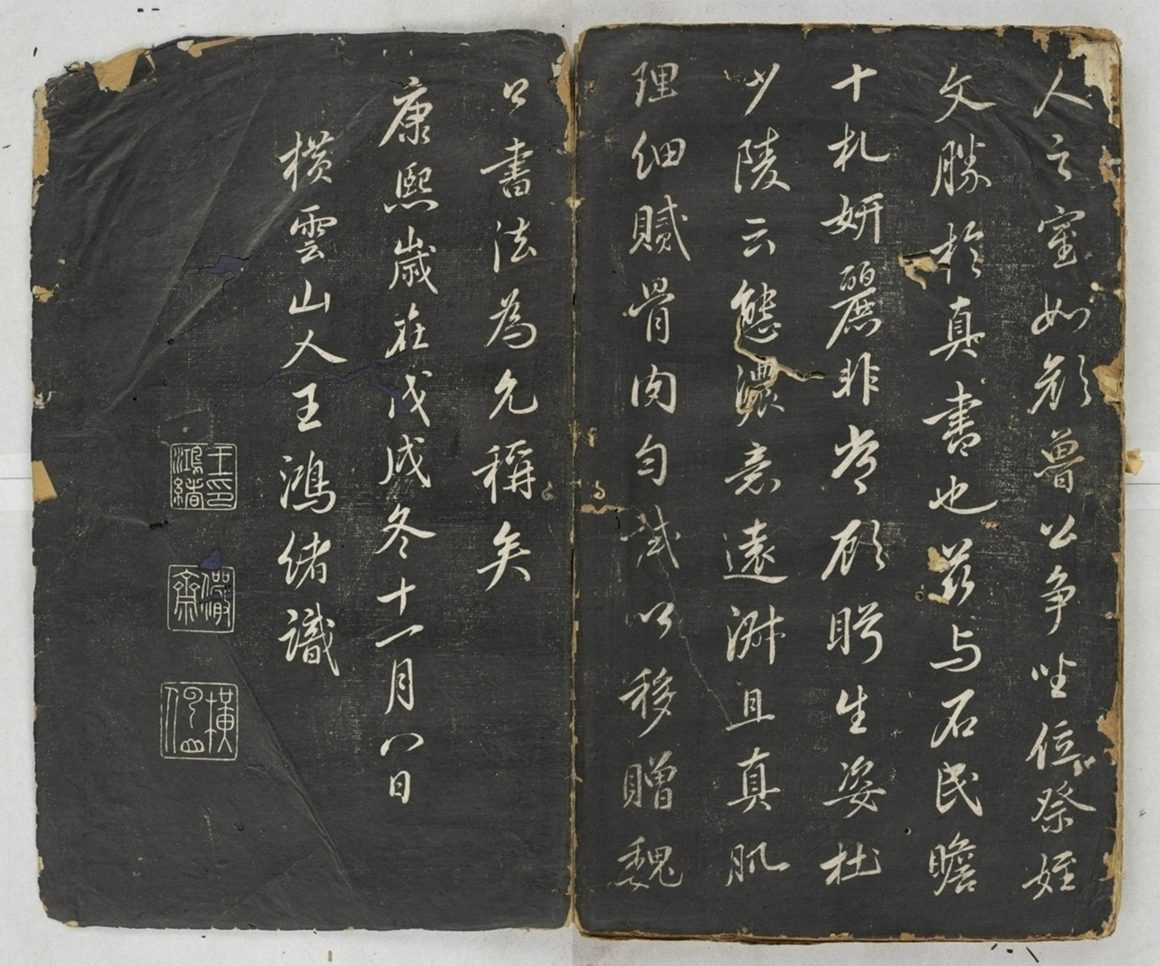 人之室如顏魯公争坐位祭姪
文勝於真書也茲与石民瞻
十札妍麗非常顧眄生姿杜
少陵云態濃意遠淋且真肌
理細膩骨肉匀試以移贈魏
公書法為允稱矣
康熙歲在戊戌冬十一月八日
橫雲山人王鴻緒識
王鴻緒印
儼齋
橫雲山人